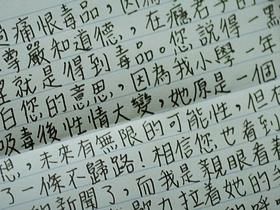 痛恨毒品，因為
尊嚴知道德，在癮君子的
里就是得到毒品。您說得一
白您的意思，因為我小學一年
吸毒後性情大變，她原是一個
想，未來有無限的可能性，但
了一條不歸路！相信您也看到
新聞了，而我是親眼看着
力拉着她的